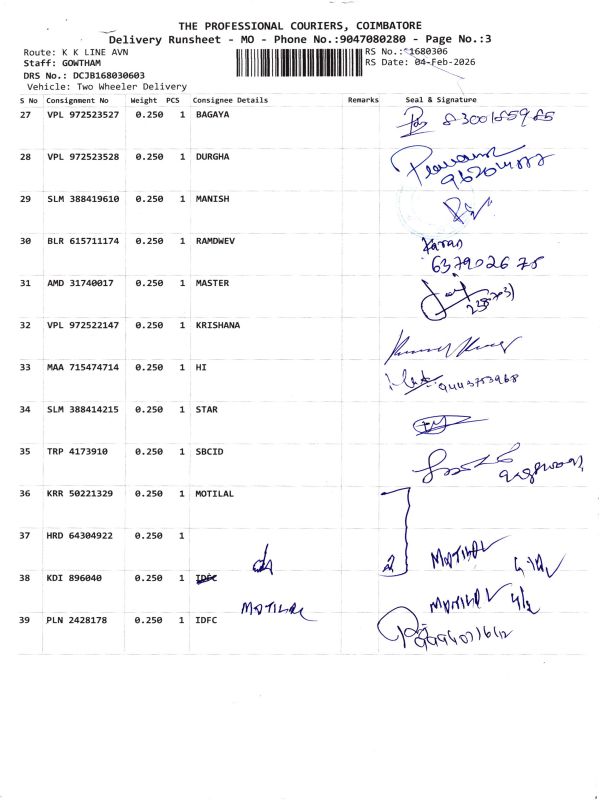 THE PROFESSIONAL COURIERS, COIMBATORE
Delivery Runsheet - MO - Phone No.:9047080280 - Page No.:3
Route: K K LINE AVN
RS No.:1680306
Staff: GOWTHAM
RS Date: 04-Feb-2026
DRS No.: DCJB168030603
Vehicle: Two Wheeler Delivery
S No Consignment No Weight PCS Consignee Details Remarks Seal & Signature
27 VPL 972523527 0.250 1 BAGAYA
28 VPL 972523528 0.250 1 DURGHA
29 SLM 388419610 0.250 1 MANISH
30 BLR 615711174 0.250 1 RAMDWEV Karan
6379026 75
31 AMD 31740017 0.250 1 MASTER
32 VPL 972522147 0.250 1 KRISHANA
33 MAA 715474714 0.250 1 HI
9443753968
34 SLM 388414215 0.250 1 STAR
35 TRP 4173910 0.250 1 SBCID
36 KRR 50221329 0.250 1 MOTILAL
37 HRD 64304922 0.250 1
MOTILAL
38 KDI 896040 0.250 1 IDFC
MOTILAL MOTILAL 4/2
39 PLN 2428178 0.250 1 IDFC